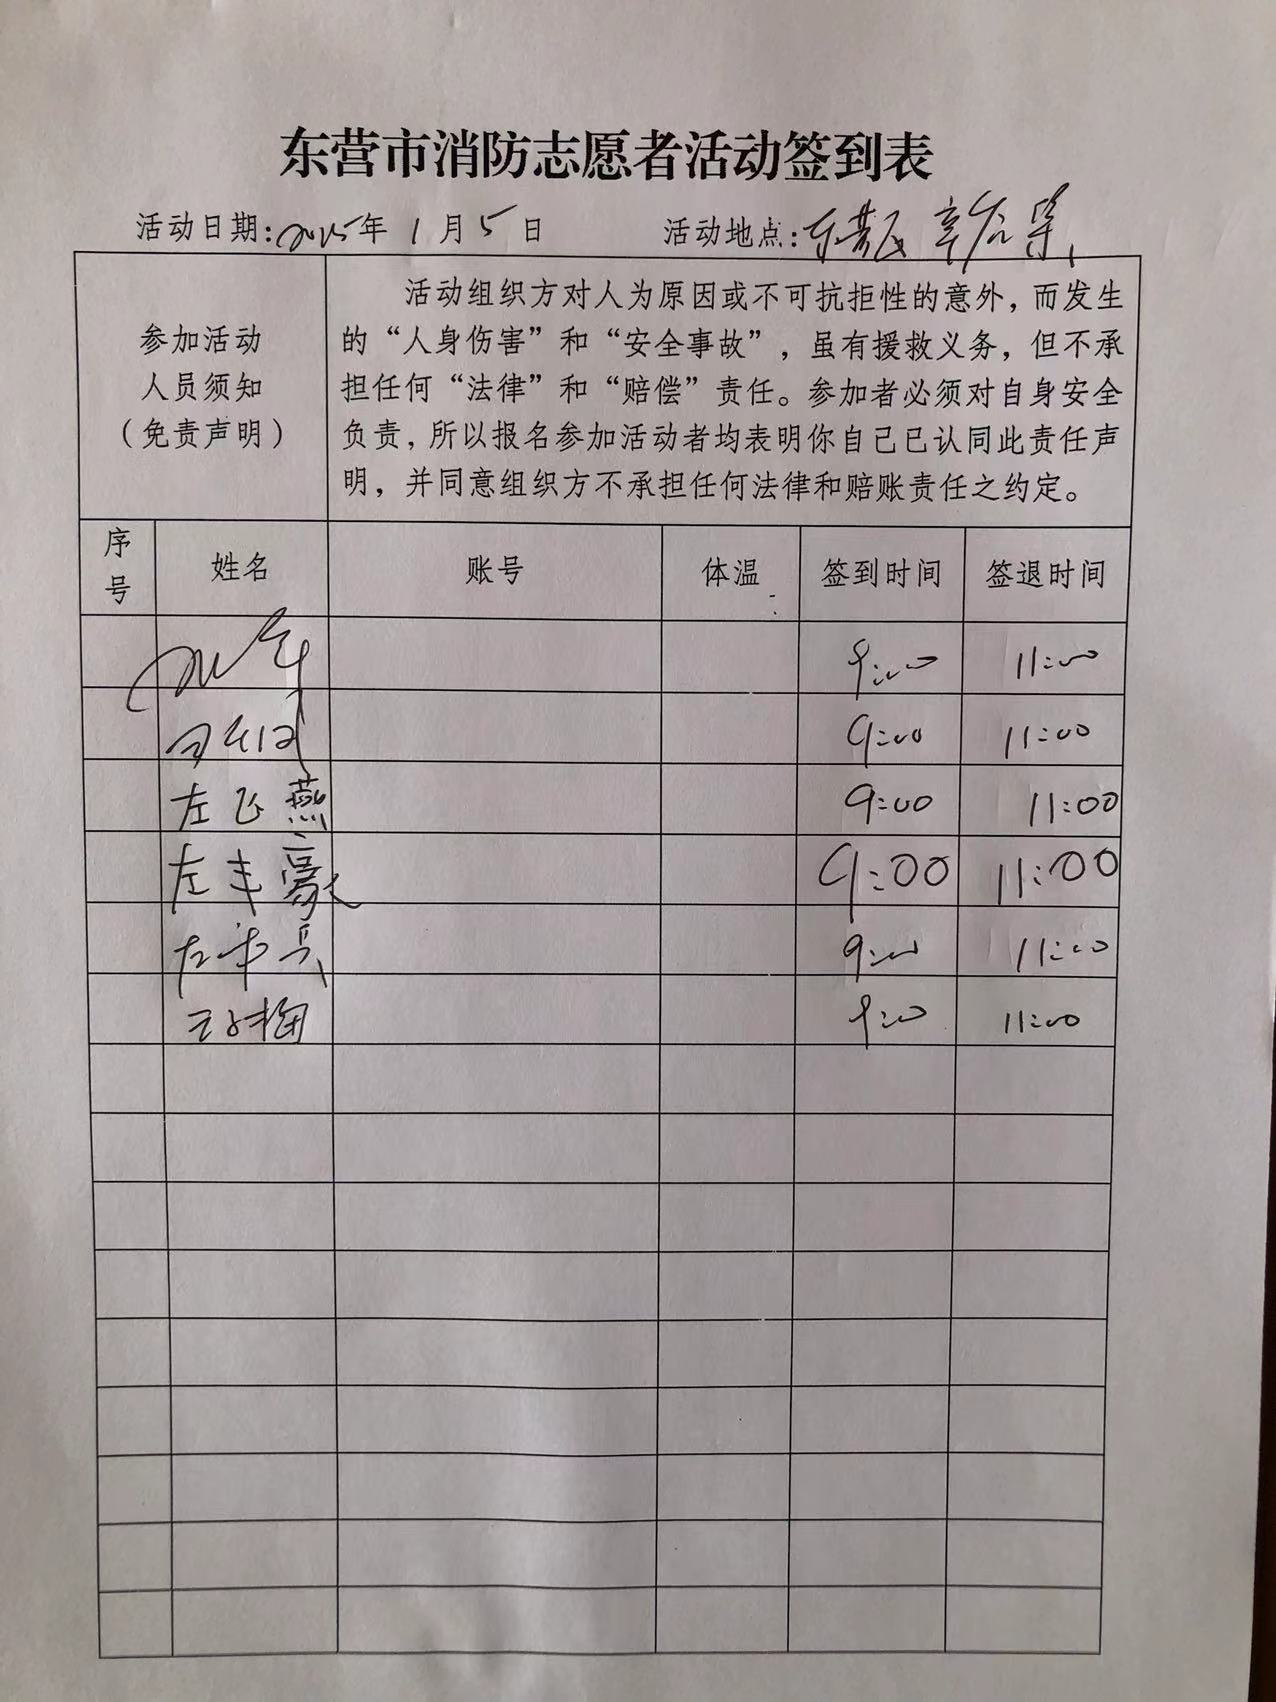 东营市消防志愿者活动签到表
活动日期:2025年 1月5日 活动地点:东营区辛店
参加活动
人员须知
（免责声明）
活动组织方对人为原因或不可抗拒性的意外，而发生
的“人身伤害”和“安全事故”，虽有援救义务，但不承
担任何“法律”和“赔偿”责任。参加者必须对自身安全
负责，所以报名参加活动者均表明你自己已认同此责任声
明，并同意组织方不承担任何法律和赔账责任之约定。
序号 姓名 账号 体温 签到时间 签退时间
9:00 11:00
9:00 11:00
左飞燕 9:00 11:00
左丰豪 9:00 11:00
左丰兵 9:00 11:00
9:00 11:00